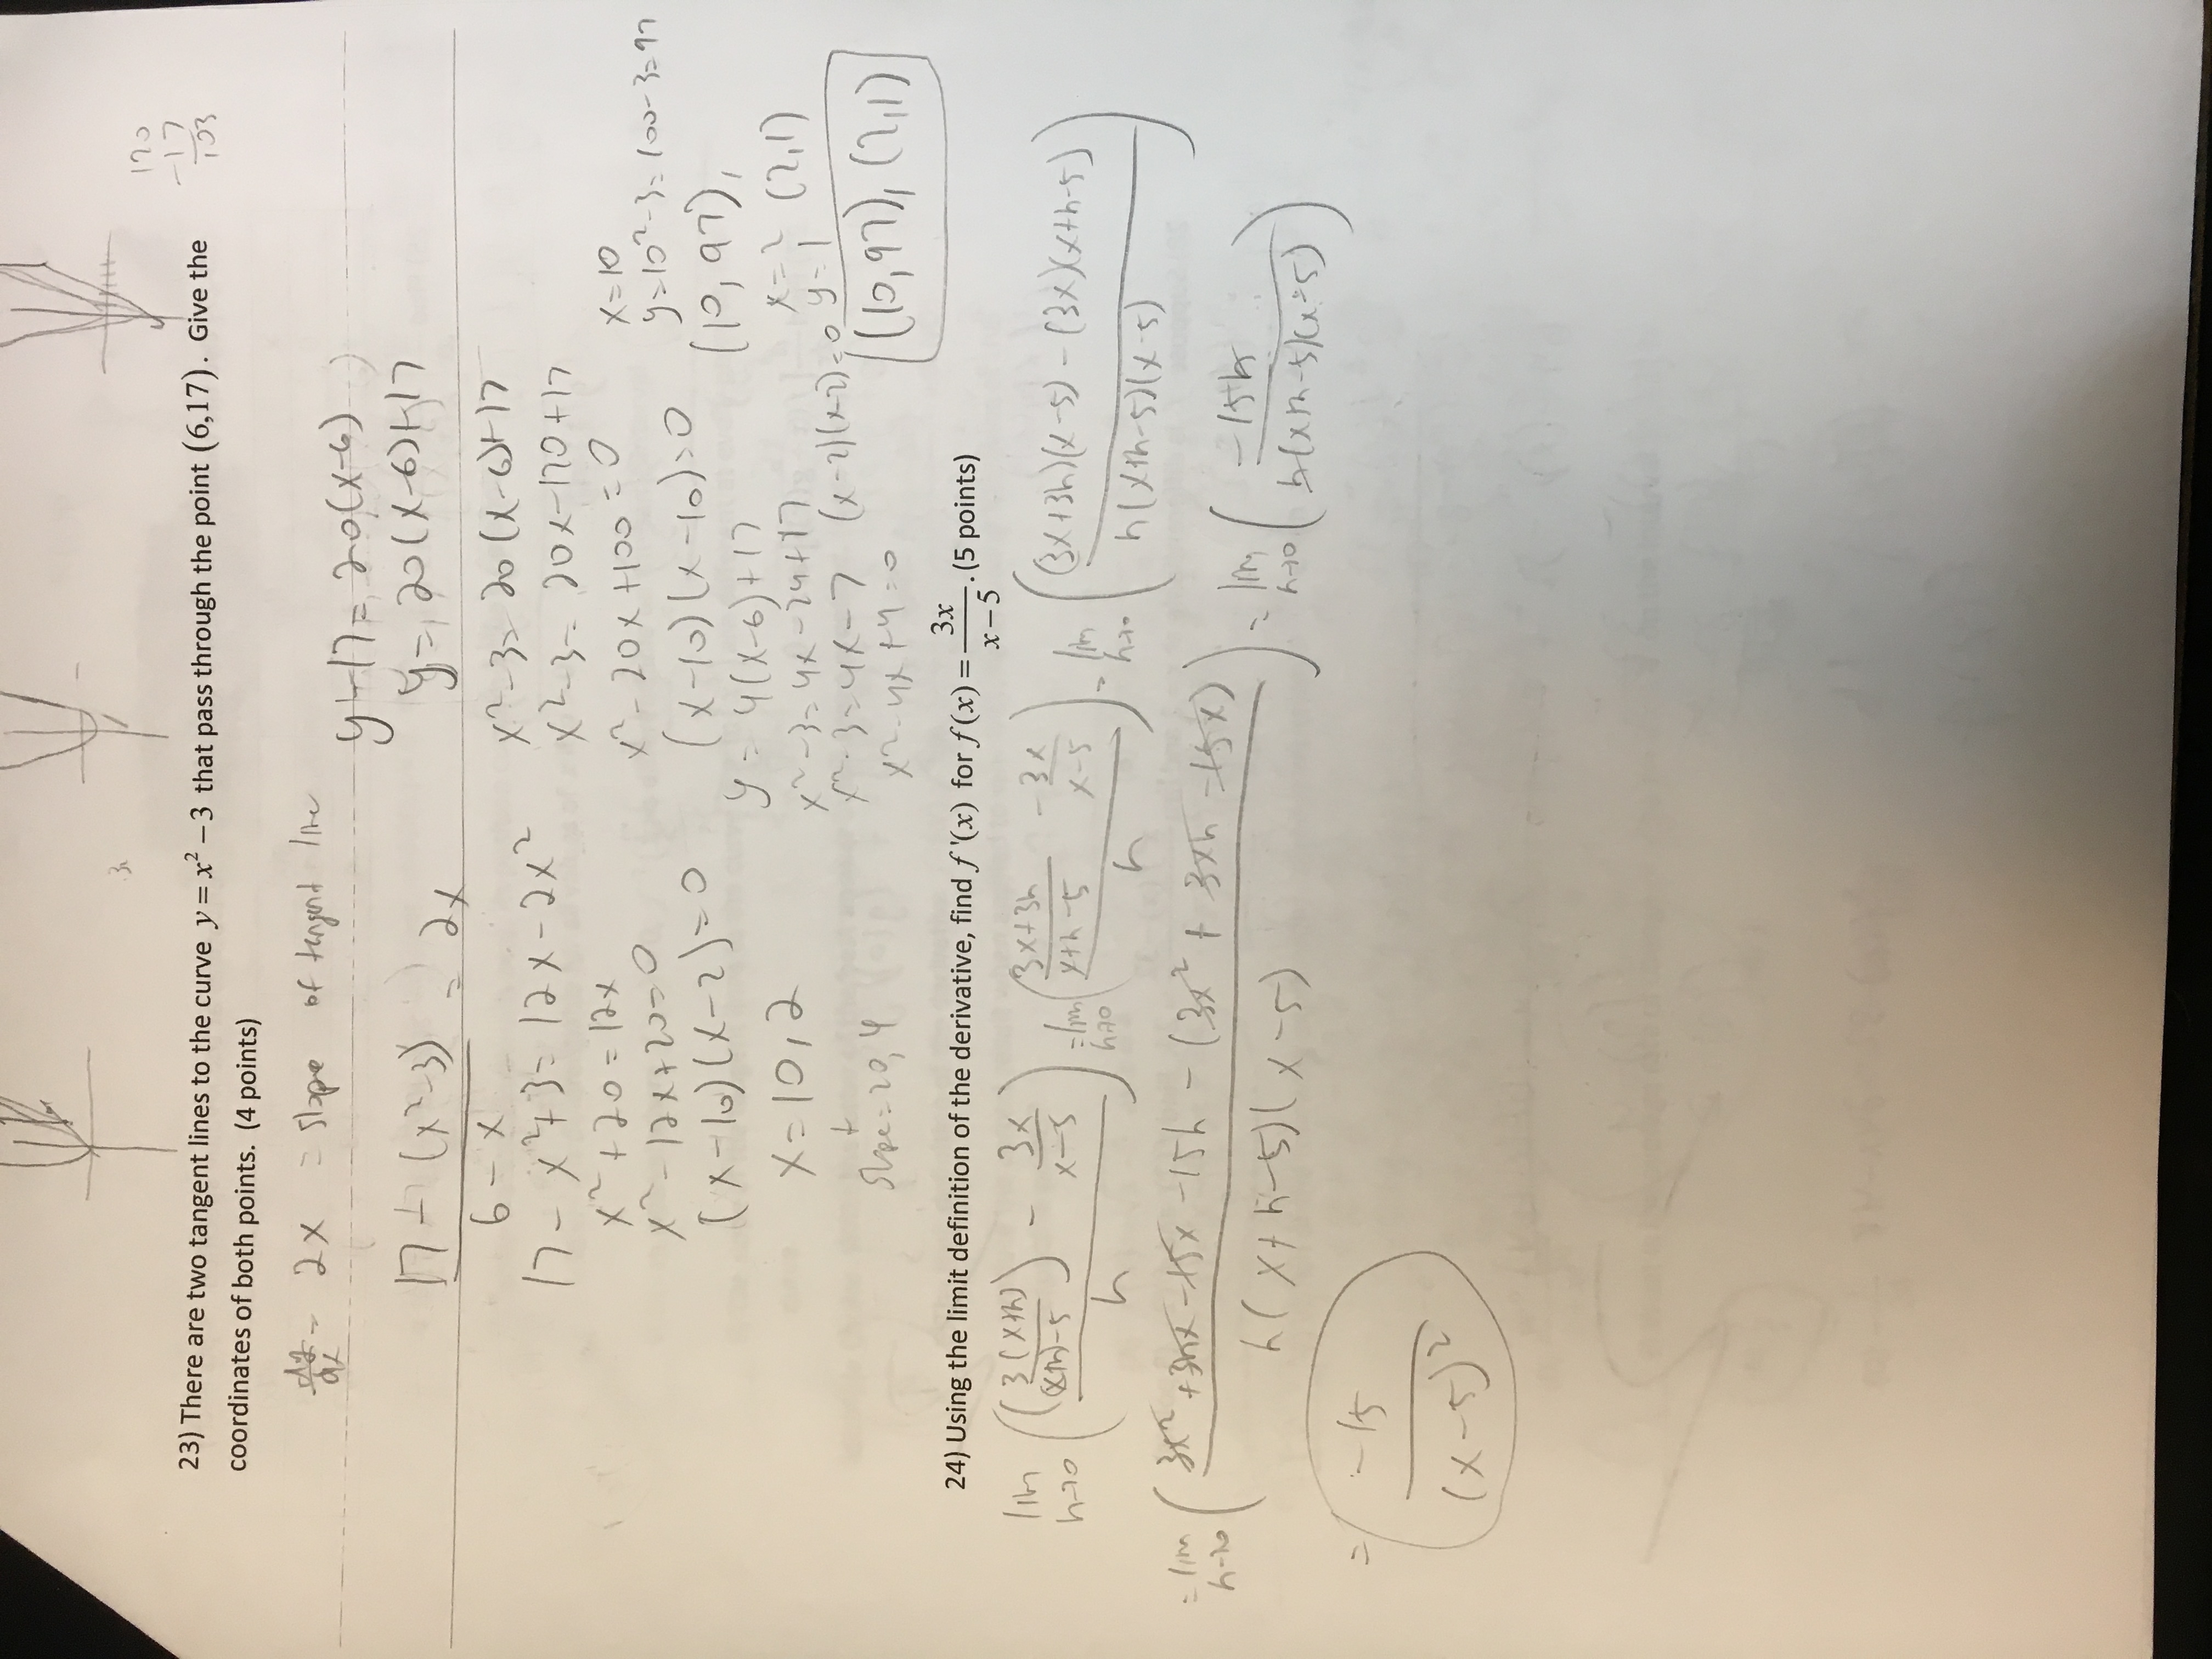 120
-17
103
23) There are two tangent lines to the curve y = x² – 3 that pass through the point (6,17). Give the
coordinates of both points. (4 points)
dy/dx = 2x = slope of tangent line
(17 - (x²-3))/(6-x) = 2x
17 - x²+3 = 12x - 2x²
x² + 20 = 12x
x² - 12x + 20 = 0
(x-10)(x-2) = 0
x = 10, 2
slope = 20, 4
y - 17 = 20(x-6)
y = 20(x-6)+17
x² - 3 = 20(x-6)+17
x² - 3 = 20x - 120 + 17
x² - 20x + 100 = 0
(x-10)(x-10) = 0
y = 4(x-6)+17
x² - 3 = 4x - 24 + 17
x² - 3 = 4x - 7
x² - 4x + 4 = 0
(x-2)(x-2) = 0
x = 10
y = 10² - 3 = 100 - 3 = 97
(10, 97),
x = 2 (2,1)
y = 1
(10,97), (2,1)
24) Using the limit definition of the derivative, find f '(x) for f(x) = 3x/(x – 5). (5 points)
lim h→0 (((3(x+h)/((x+h)-5)) - 3x/(x-5))/h) = lim h→0 (((3x+3h)/(x+h-5) - 3x/(x-5))/h) = lim h→0 (((3x+3h)(x-5) - (3x)(x+h-5))/(h(x+h-5)(x-5)))
= lim h→0 ((3x² + 3hx - 15x - 15h - (3x² + 3xh - 15x))/(h(x+h-5)(x-5))) = lim h→0 (-15h/(h(x+h-5)(x-5)))
= -15/(x-5)²